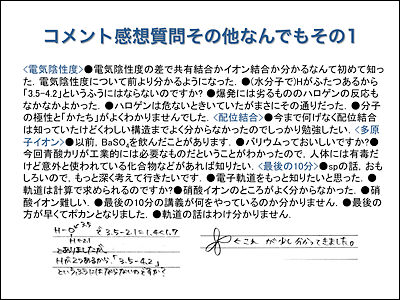 コメント感想質問その他なんでもその1
<電気陰性度>●電気陰性度の差で共有結合かイオン結合か分かるなんて初めて知っ
た. 電気陰性度について前より分かるようになった. ●(水分子で)Hがふたつあるから
「3.5-4.2」というふうにはならないのですか? ●爆発には劣るもののハロゲンの反応も
なかなかよかった. ●ハロゲンは危ないときいていたがまさにその通りだった. ●分子
の極性と「かたち」がよくわかりませんでした. <配位結合>●今まで何げなく配位結合
は知っていたけどくわしい構造までよく分からなかったのでしっかり勉強したい. <多原
子イオン>●以前, BaSO₄を飲んだことがあります. ●バリウムっておいしいですか? ●
今回青酸カリが工業的には必要なものだということがわかったので, 人体には有毒だ
けど意外と使われている化合物などがあれば知りたい. <最後の10分>●spの話, おも
しろいので, もっと深く考えて行きたいです. ●電子軌道をもっと知りたいと思った. ●
軌道は計算で求められるのですか?●硝酸イオンのところがよく分からなかった. ●硝
酸イオン難しい. ●最後の10分の講義が何をやっているのか分かりません. ●最後の
方が早くてポカンとなりました. ●軌道の話はわけ分かりません.
H-O 3.5 で 3.5-2.1=1.4<1.7
H 2.1
とありましたが、
Hが2つあるから「3.5-4.2」
というふうにはならないのですか?
←これ が少し分かってきました。